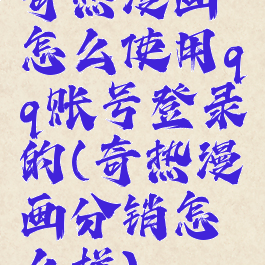 奇热漫画
怎么使用q
q账号登录
的(奇热漫
画分销怎
么样)